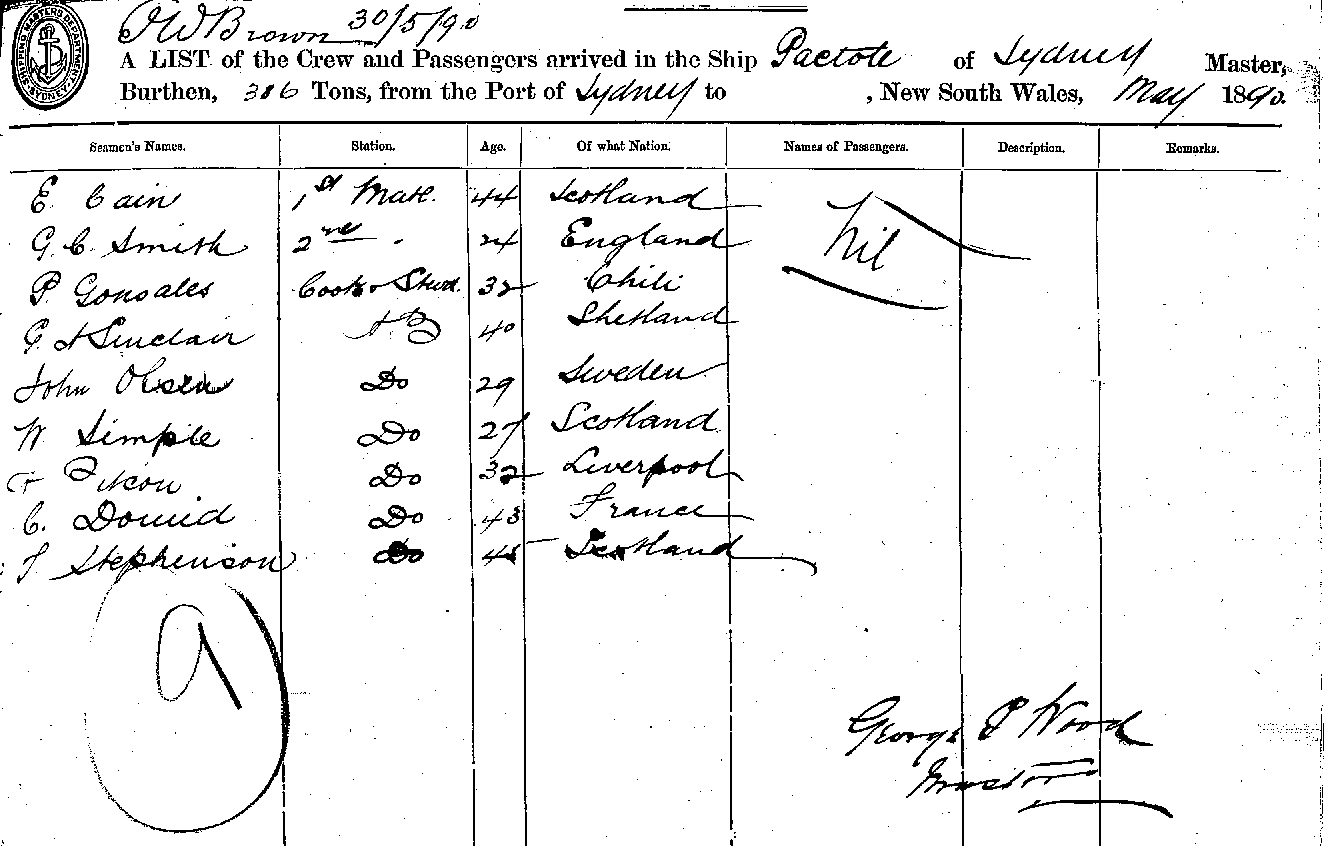 SHIPPING MASTERS DEPARTMENT SYDNEY
J W Brown 30/5/90
A LIST of the Crew and Passengers arrived in the Ship Pactole of Sydney Master,
Burthen, 306 Tons, from the Port of Sydney to , New South Wales, May 1890.
Seamen's Names. Station. Age. Of what Nation. Names of Passengers. Description. Remarks.
E. Cain 1st Mate. 44 Scotland Nil
G. C. Smith 2nd " 24 England
P. Gonsales Cook & Stwd. 32 Chili
G. A Sinclair A B 40 Shetland
John Olsen Do 29 Sweden
W Simple Do 27 Scotland
Do 32 Liverpool
C. Do 43 France
T Stephenson Do 45 Scotland
9
George P Wood
Master